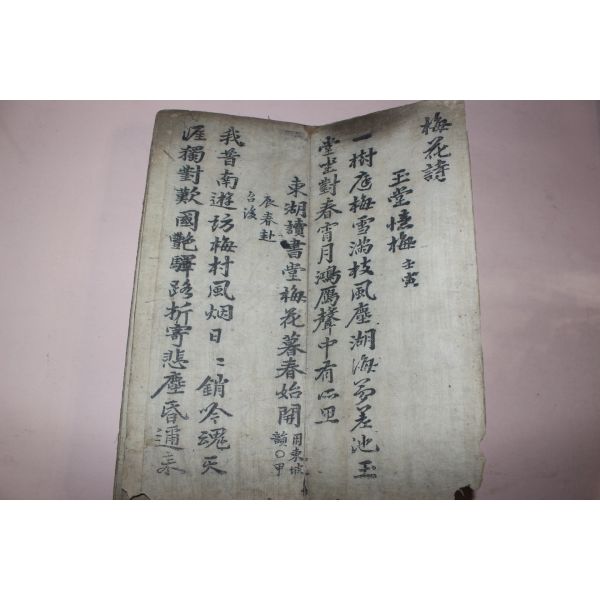 梅花詩
玉堂憶梅 壬寅
一樹庭梅雪滿枝風塵湖海夢差池玉
堂坐對春宵月鴻雁聲中有所思
東湖讀書堂梅花暮春始開 用東坡韻〇甲
辰春赴
召後
我昔南遊訪梅村風烟日〻銷吟魂天
涯獨對歎國艶驛路折寄悲塵昏邇來